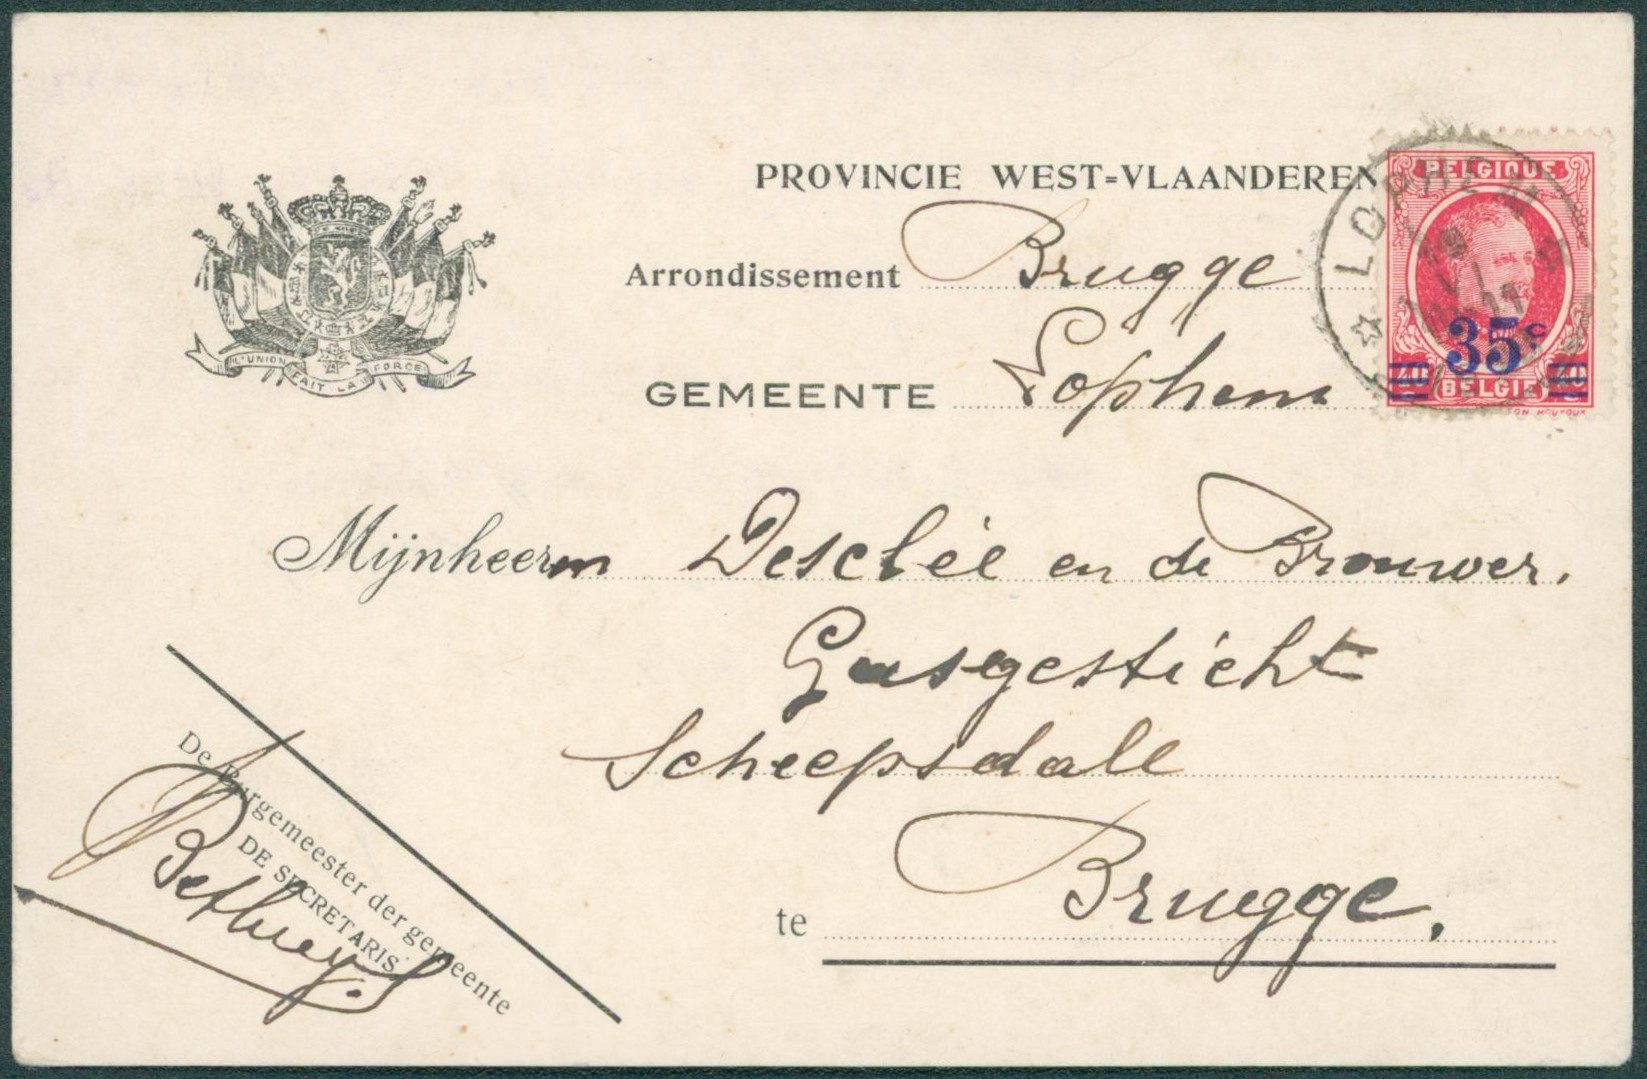 PROVINCIE WEST=VLAANDEREN
Arrondissement Brugge
GEMEENTE Lophem
L'UNION FAIT LA FORCE
BELGIQUE
35c
40 BELGIË 40
HOUYOUX
LOPHEM
VI
11
Mijnheeren Desclée en de Brouwer.
Gasgesticht
Scheepsdale
te Brugge.
De Burgemeester der gemeente
DE SECRETARIS
Bethuey